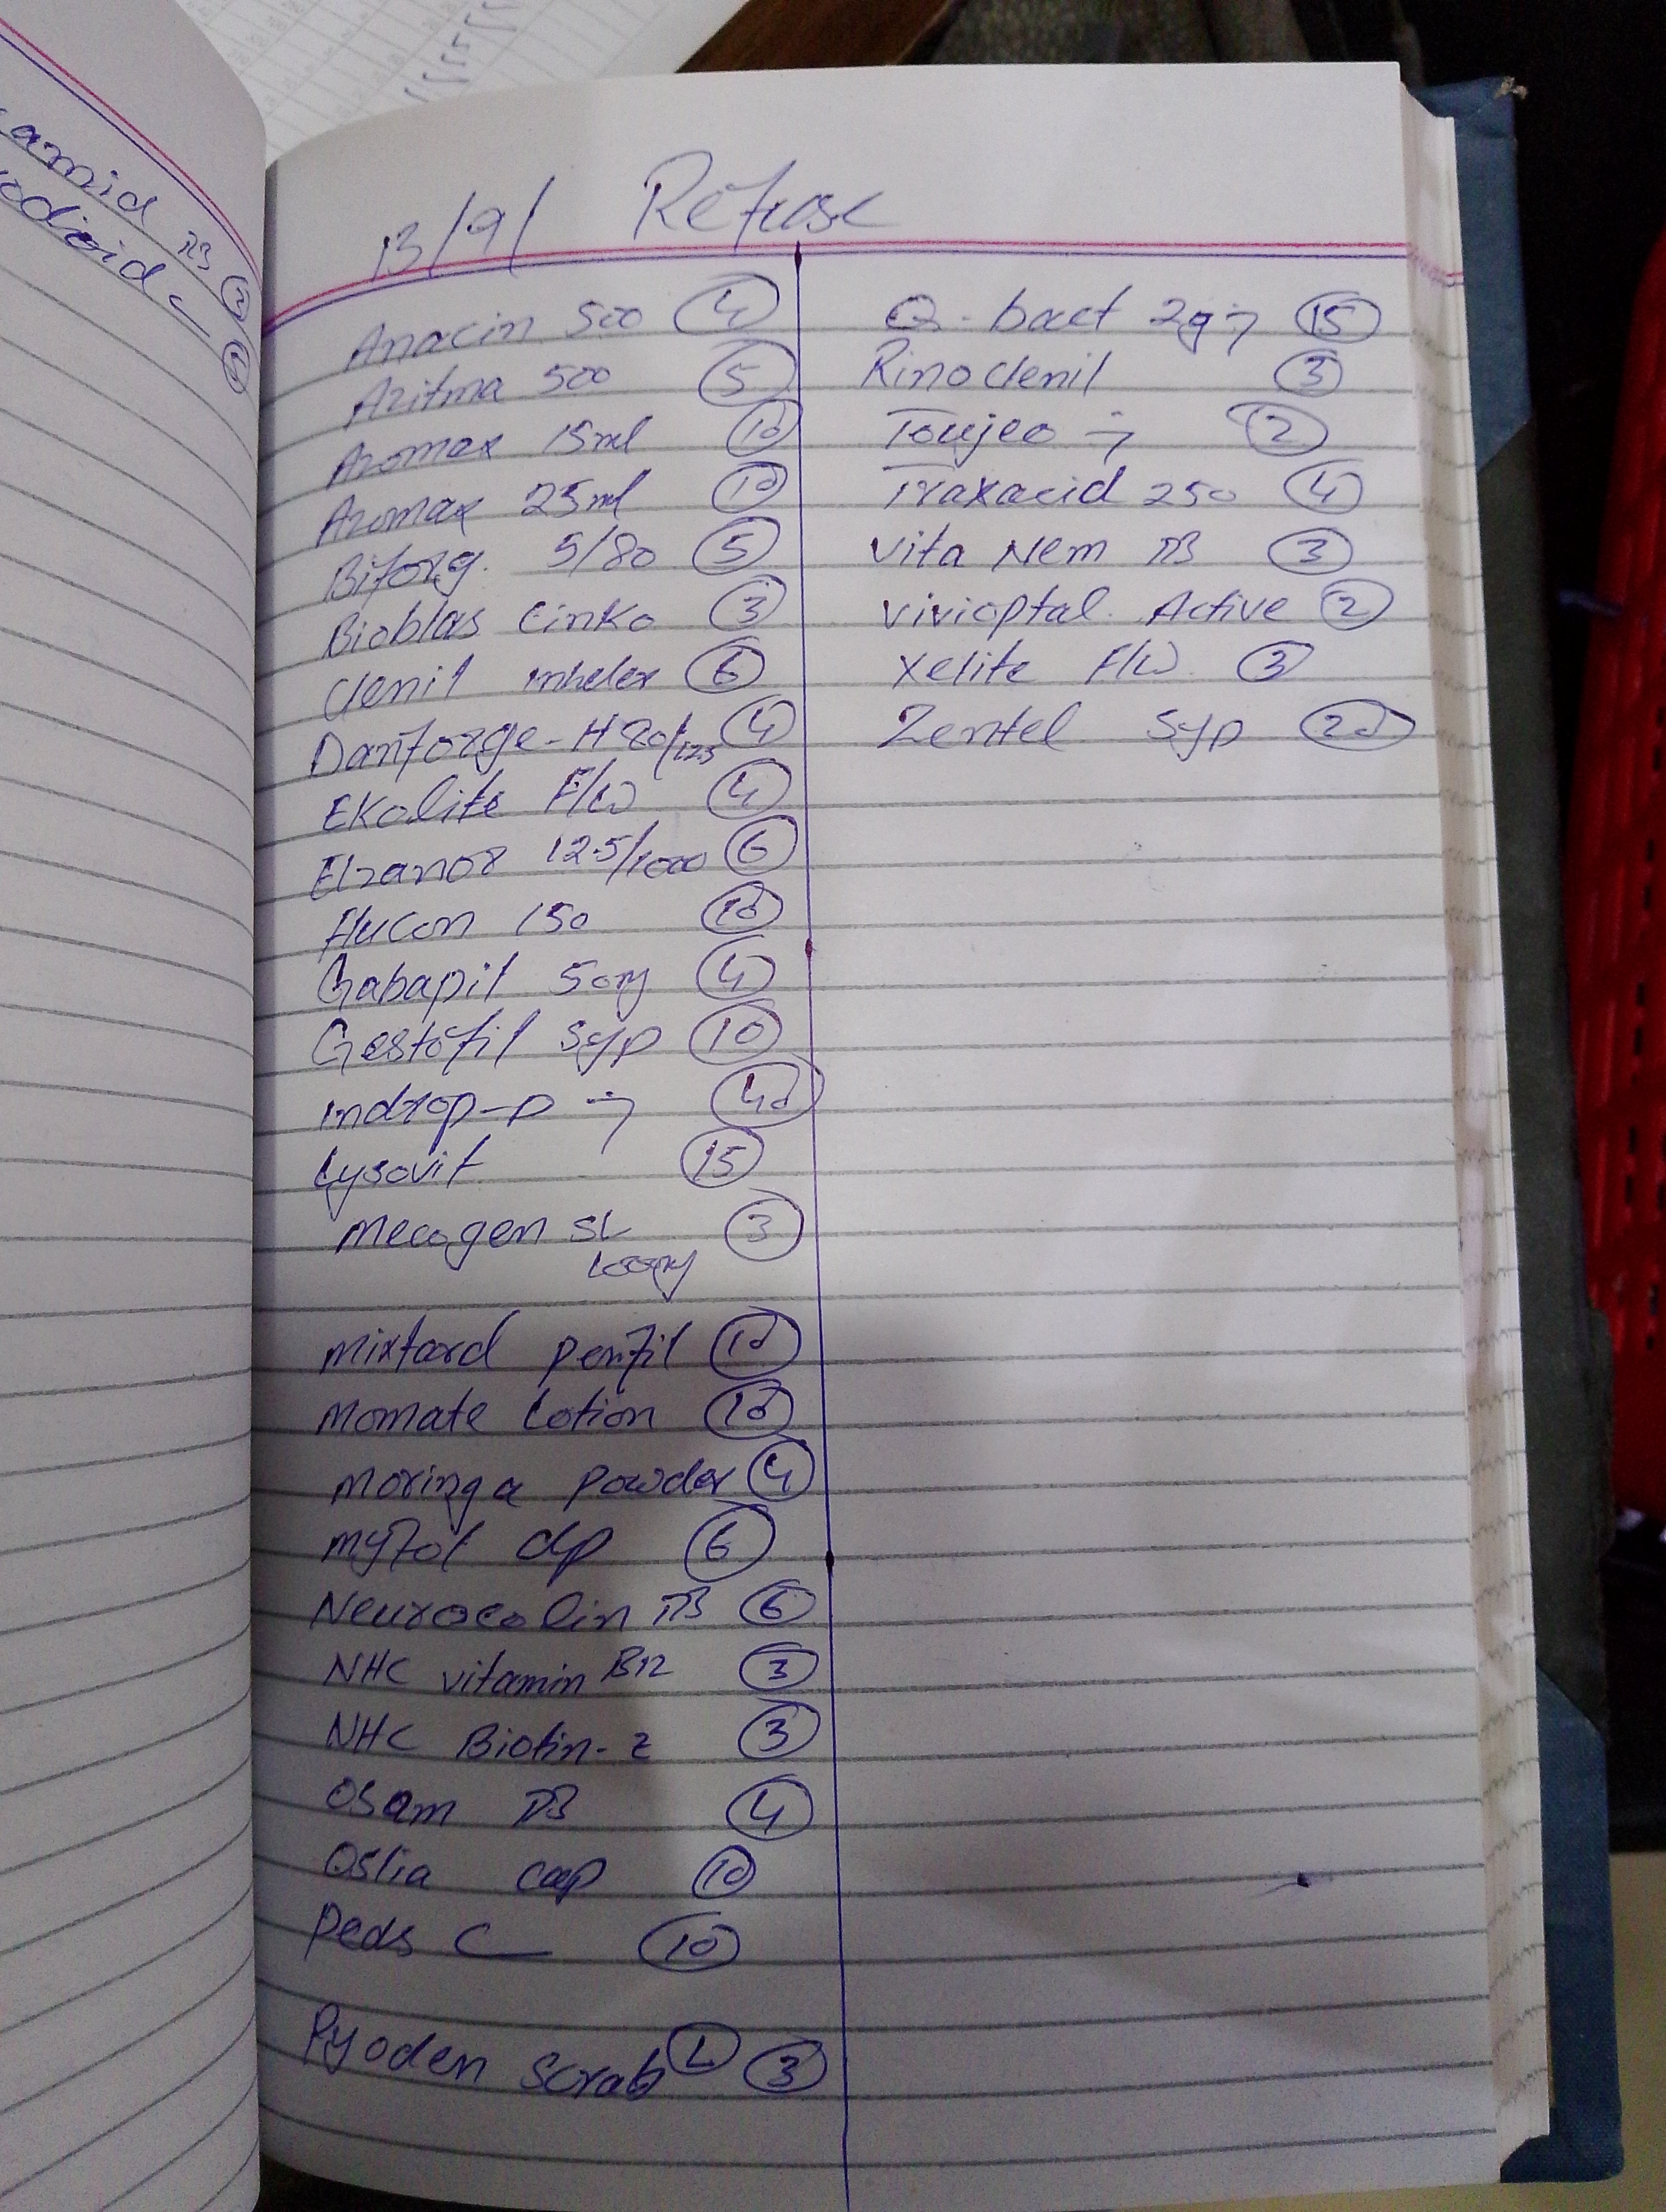 amid TB 2
13/9/ Refuse
Anacin 500 4
Azitma 500 5
Azomax 15ml 10
Azomax 25ml 10
Biforg. 5/80 5
Bioblas Cinko 3
Clenil inheler 6
Danforge-H 80/125 4
EKolite F/W 4
Elzanor 12.5/1000 6
Flucon 150 10
Gabapil 50mg 4
Gestofil Syp 10
indrop-D 40
Lysovit 15
Mecogen SL 3
Mixtard penfil 10
Momate Lotion 10
Moringa powder 4
Myfol dp 6
Neurocolin TB 6
NHC vitamin B12 3
NHC Biotin-Z 3
Osam TB 4
Oslia cap 10
Peds C 10
Pyoden Scrab L 3
Q-bact 2g 15
Rinoclenil 3
Toujeo 2
Traxacid 250 4
Vita Nem TB 3
Vivioptal. Active 2
Xelite F/W. 3
Zentel Syp 20